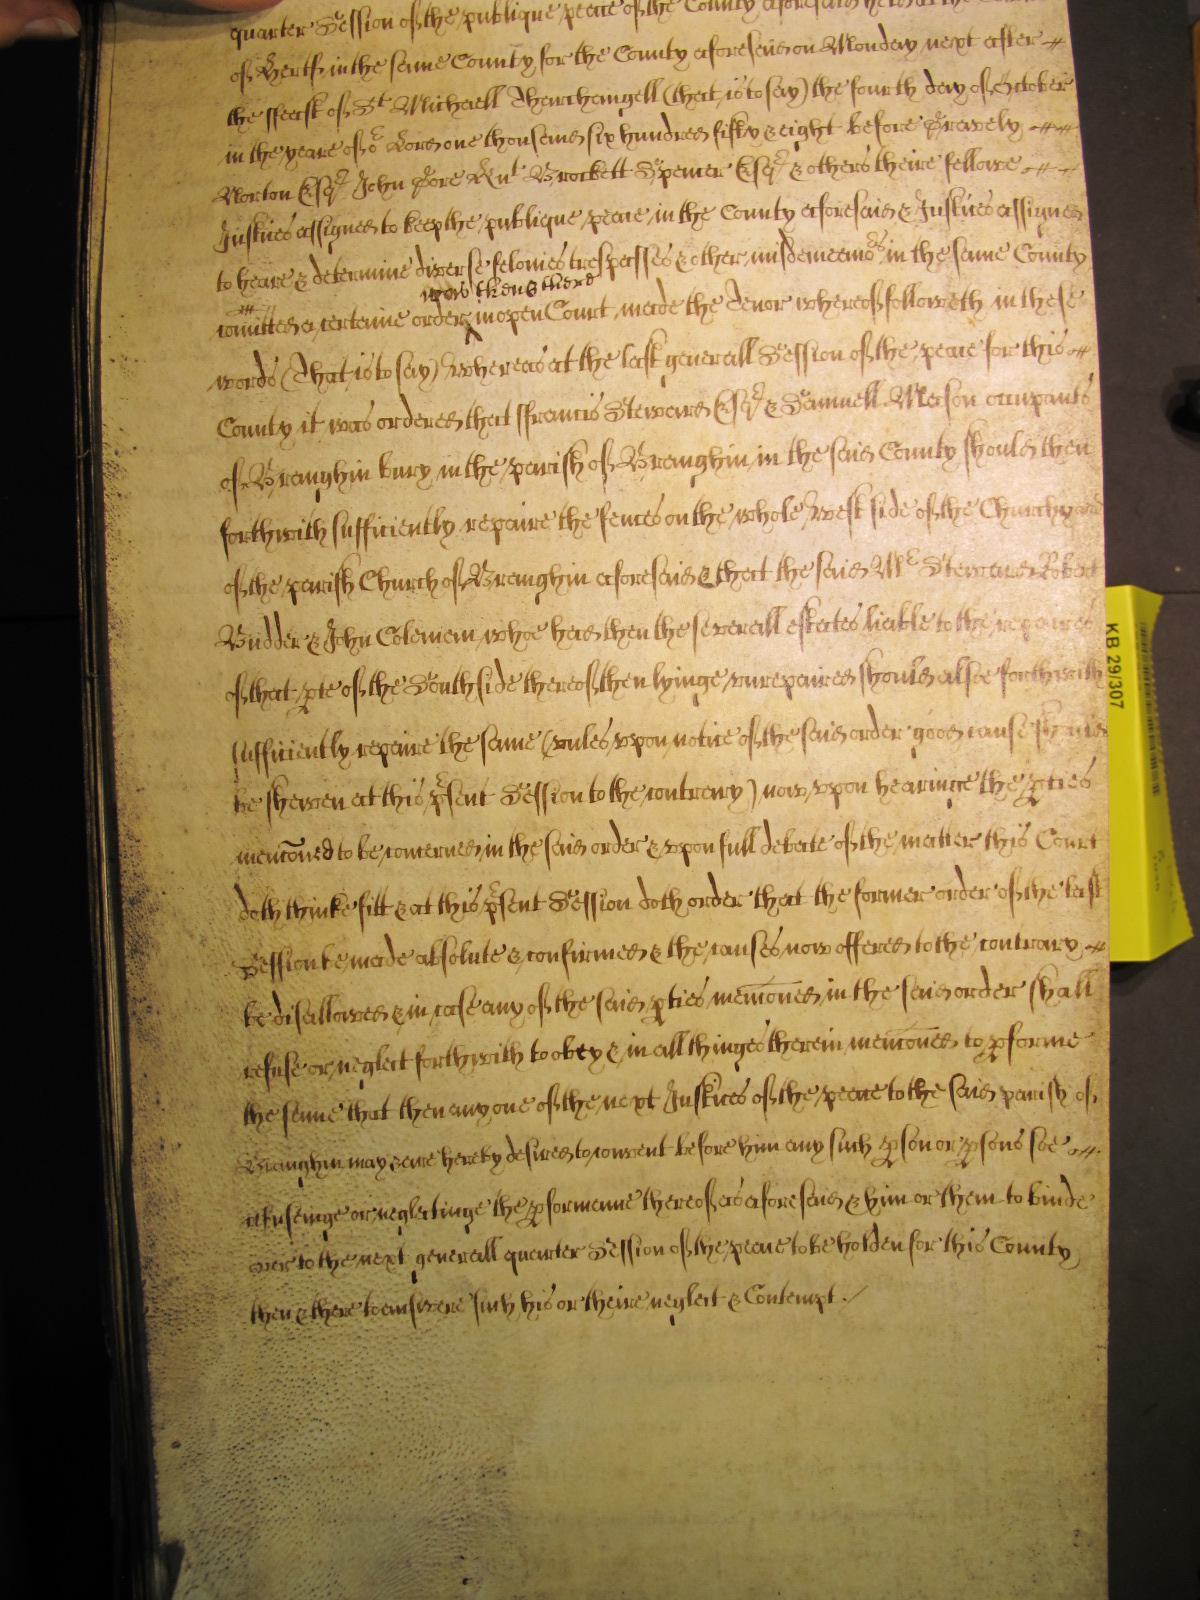 quarter Session of the publique peace of the County aforesaid held at the
of Hertf in the same County for the County aforesaid on Monday next after
the ffeast of St Michaell Tharchangell (that is to say) the fourth day of October
in the yeare of or Lord one thousand six hundred fifty & eight before Gravely
Norton Esqr John Gore Knt Brockett Spencer Esqr & others theire fellowe
Justices assigned to keep the publique peace in the County aforesaid & Justices assigned
to heare & determine diverse felonies trespasses & other misdemeanors in the same County
was then & there
comitted a certaine order in open Court made the Tenor whereof followeth in these
words (That is to say) Whereas at the last generall Session of the peace for this
County it was ordered that ffrancis Steward Esqr & Samuell Mason occupants
of Braughin bury in the parish of Braughin in the said County should then
forthwith sufficiently repaire the fences on the whole West side of the Churchyard
of the parish Church of Braughin aforesaid & that the said Mr Steward Robert
Budder & John Coleman whoe had then the severall estates liable to the repaires
of that pte of the South side thereof then lyinge unrepaired should alsoe forthwith
sufficiently repaire the same (unles upon notice of the said order good cause should
be shewen at this psent Session to the contrary) now upon hearinge the pties
menconed to be concerned in the said order & upon full debate of the matter this Court
doth thinke fitt & at this psent Session doth order that the former order of the last
Session be made absolute & confirmed & the causes now offered to the contrary
be disallowed & in case any of the said pties menconed in the said order shall
refuse or neglect forthwith to obey & in all thinges therein menconed to pforme
the same that then any one of the next Justices of the peace to the said parish of
Braughin may & are hereby desired to convent before him any such pson or psons soe
refuseinge or neglectinge the pformance thereof as aforesaid & him or them to binde
over to the next generall quarter Session of the peace to be holden for this County
then & there to answere such his or theire neglect & Contempt ./
KB 29/307